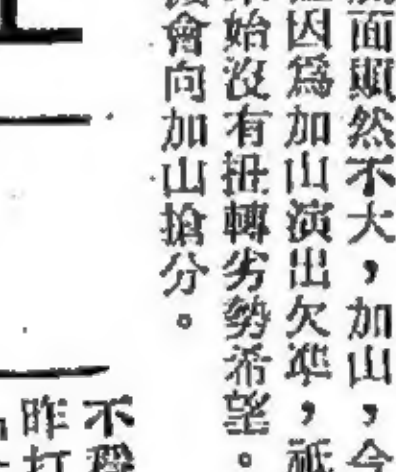 面顯然不大，加山，今
因爲加山演出欠準，祇
始沒有扭轉劣勢希望。
會向加山搶分。
不穩
昨打